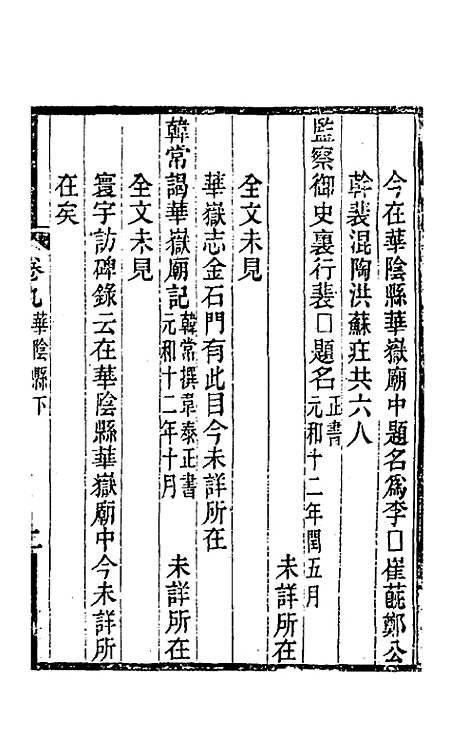 今在華陰縣華嶽廟中題名爲李□崔蕤鄭公
幹裴混陶洪蘇莊共六人
監察御史裏行裴□題名正書元和十二年閏五月
未詳所在
全文未見
華嶽志金石門有此目今未詳所在
韓常謁華嶽廟記韓常撰韋泰正書元和十二年十月 未詳所在
全文未見
寰宇訪碑錄云在華陰縣華嶽廟中今未詳所
在矣
卷九 華陰縣下